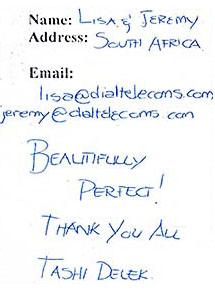 Name: LISA & JEREMY
Address: SOUTH AFRICA
Email:
lisa@dialtelecoms.com
jeremy@dialtelecoms.com
BEAUTIFULLY
PERFECT!
THANK YOU ALL
TASHI DELEK.